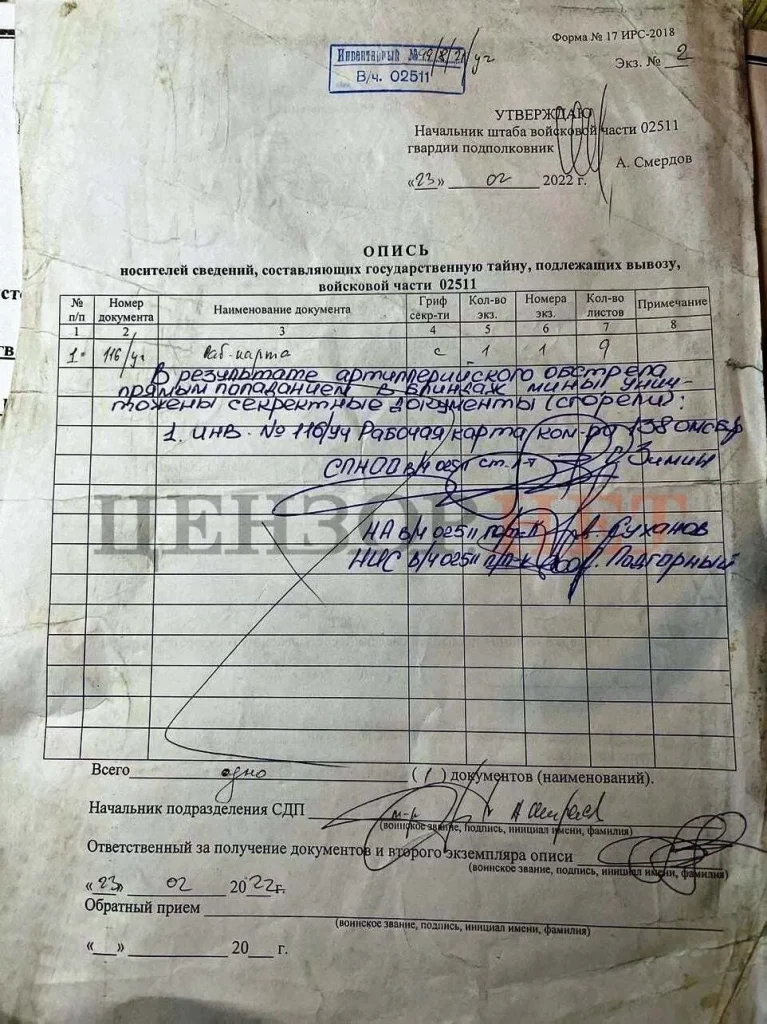 Форма № 17 ИРС-2018
Инвентарный №
Экз. № 2
В/ч. 02511
УТВЕРЖДАЮ
Начальник штаба войсковой части 02511
гвардии подполковник
А. Смердов
«23» 02 2022 г.
ОПИСЬ
носителей сведений, составляющих государственную тайну, подлежащих вывозу,
войсковой части 02511
№ п/п Номер документа Наименование документа Гриф секр-ти Кол-во экз. Номера экз. Кол-во листов Примечание
1 2 3 4 5 6 7 8
1. 116/уч Раб. карта с 1 1 9
В результате артиллерийского обстрела
прямым попаданием в блиндаж мины унич-
тожены секретные документы (сгорели):
1. инв. № 116/уч Рабочая карта ком-ра 138 омсбр
СПНОП в/ч 02511 ст. л-т Зимин
ЦЕНЗОР.НЕТ
НА в/ч 02511 п/п-к Суханов
НИС в/ч 02511 п/п-к Подгорный
Всего одно (1) документов (наименований).
Начальник подразделения СДП м-р
(воинское звание, подпись, инициал имени, фамилия)
Ответственный за получение документов и второго экземпляра описи
(воинское звание, подпись, инициал имени, фамилия)
«23» 02 2022г.
Обратный прием
(воинское звание, подпись, инициал имени, фамилия)
«__» 20__ г.